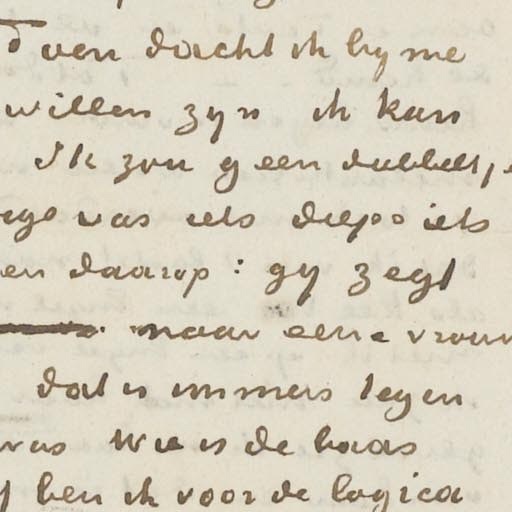 oven dacht ik by me
willen zyn ik kan
Ik zou geen dubbelt
ge vas iets diep o iets
en daarop : gy zegt
maar eene vrouw
dat is immers tegen
was Wie is de baas
ben ik voor de logica